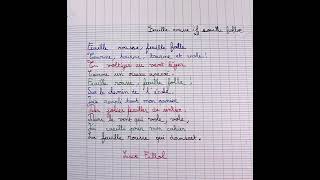 Feuille rousse, feuille folle
Feuille rousse, feuille folle
Tourne, tourne, tourne et vole !
Tu voltiges au vent léger
Comme un oiseau
Feuille rousse, feuille folle,
Sur le chemin de l'école,
J'ai rempli tout mon panier
Des jolies feuilles du
Dans le vent qui vole, vole,
J'ai cueilli pour mon cahier
La feuille rousse qui dansait.
Luce Fillol